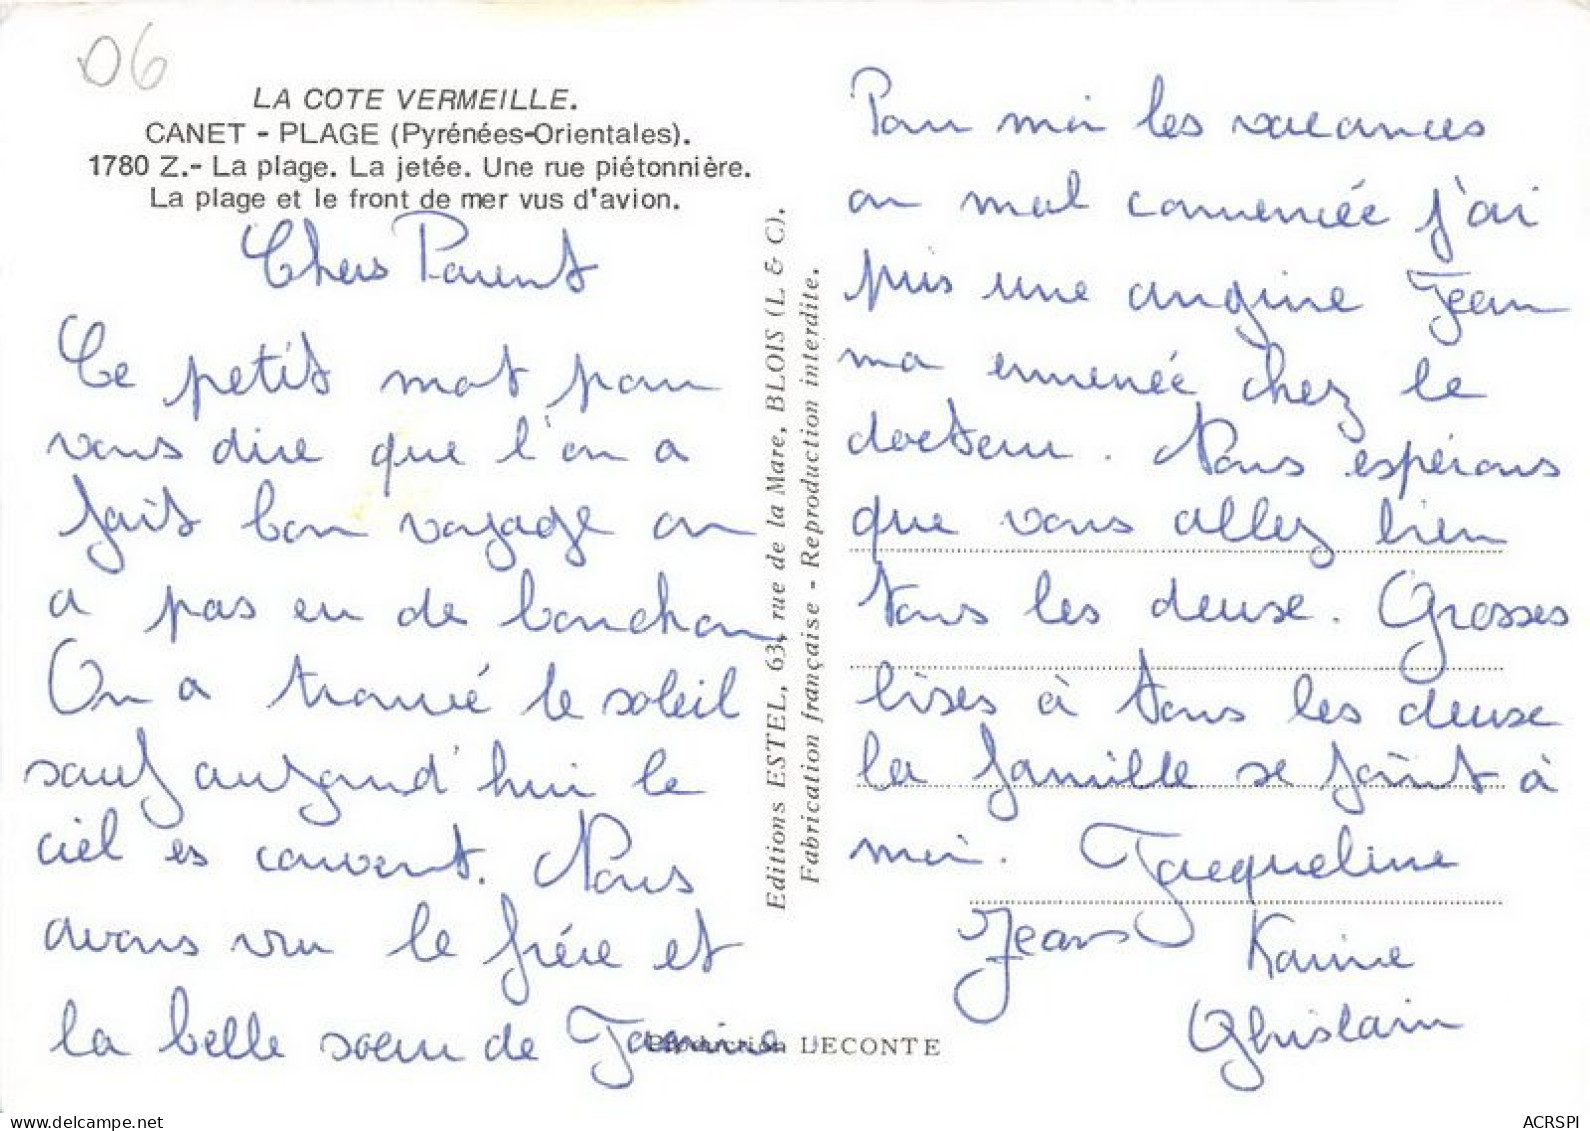 06
LA COTE VERMEILLE.
CANET - PLAGE (Pyrénées-Orientales).
1780 Z.- La plage. La jetée. Une rue piétonnière.
La plage et le front de mer vus d'avion.
Chers Parent
Ce petit mot pour
vous dire que l'on a
fait bon voyage on
a pas eu de bouchon
On a trouvé le soleil
sauf aujourd'hui le
ciel es couvert. Nous
avons vu le frére et
la belle soeur de Janine
Editions ESTEL, 63, rue de la Mare, BLOIS (L. & C).
Fabrication française - Reproduction interdite.
Production LECONTE
Pour moi les vacances
on mal commencée j'ai
pris une angine Jean
ma emmenée chez le
docteur. Nous espérons
que vous allez bien
tous les deuse. Grosses
bises à tous les deuse
la famille se joint à
moi. Jacqueline
Jean Karine
Ghislain
ACRSPI